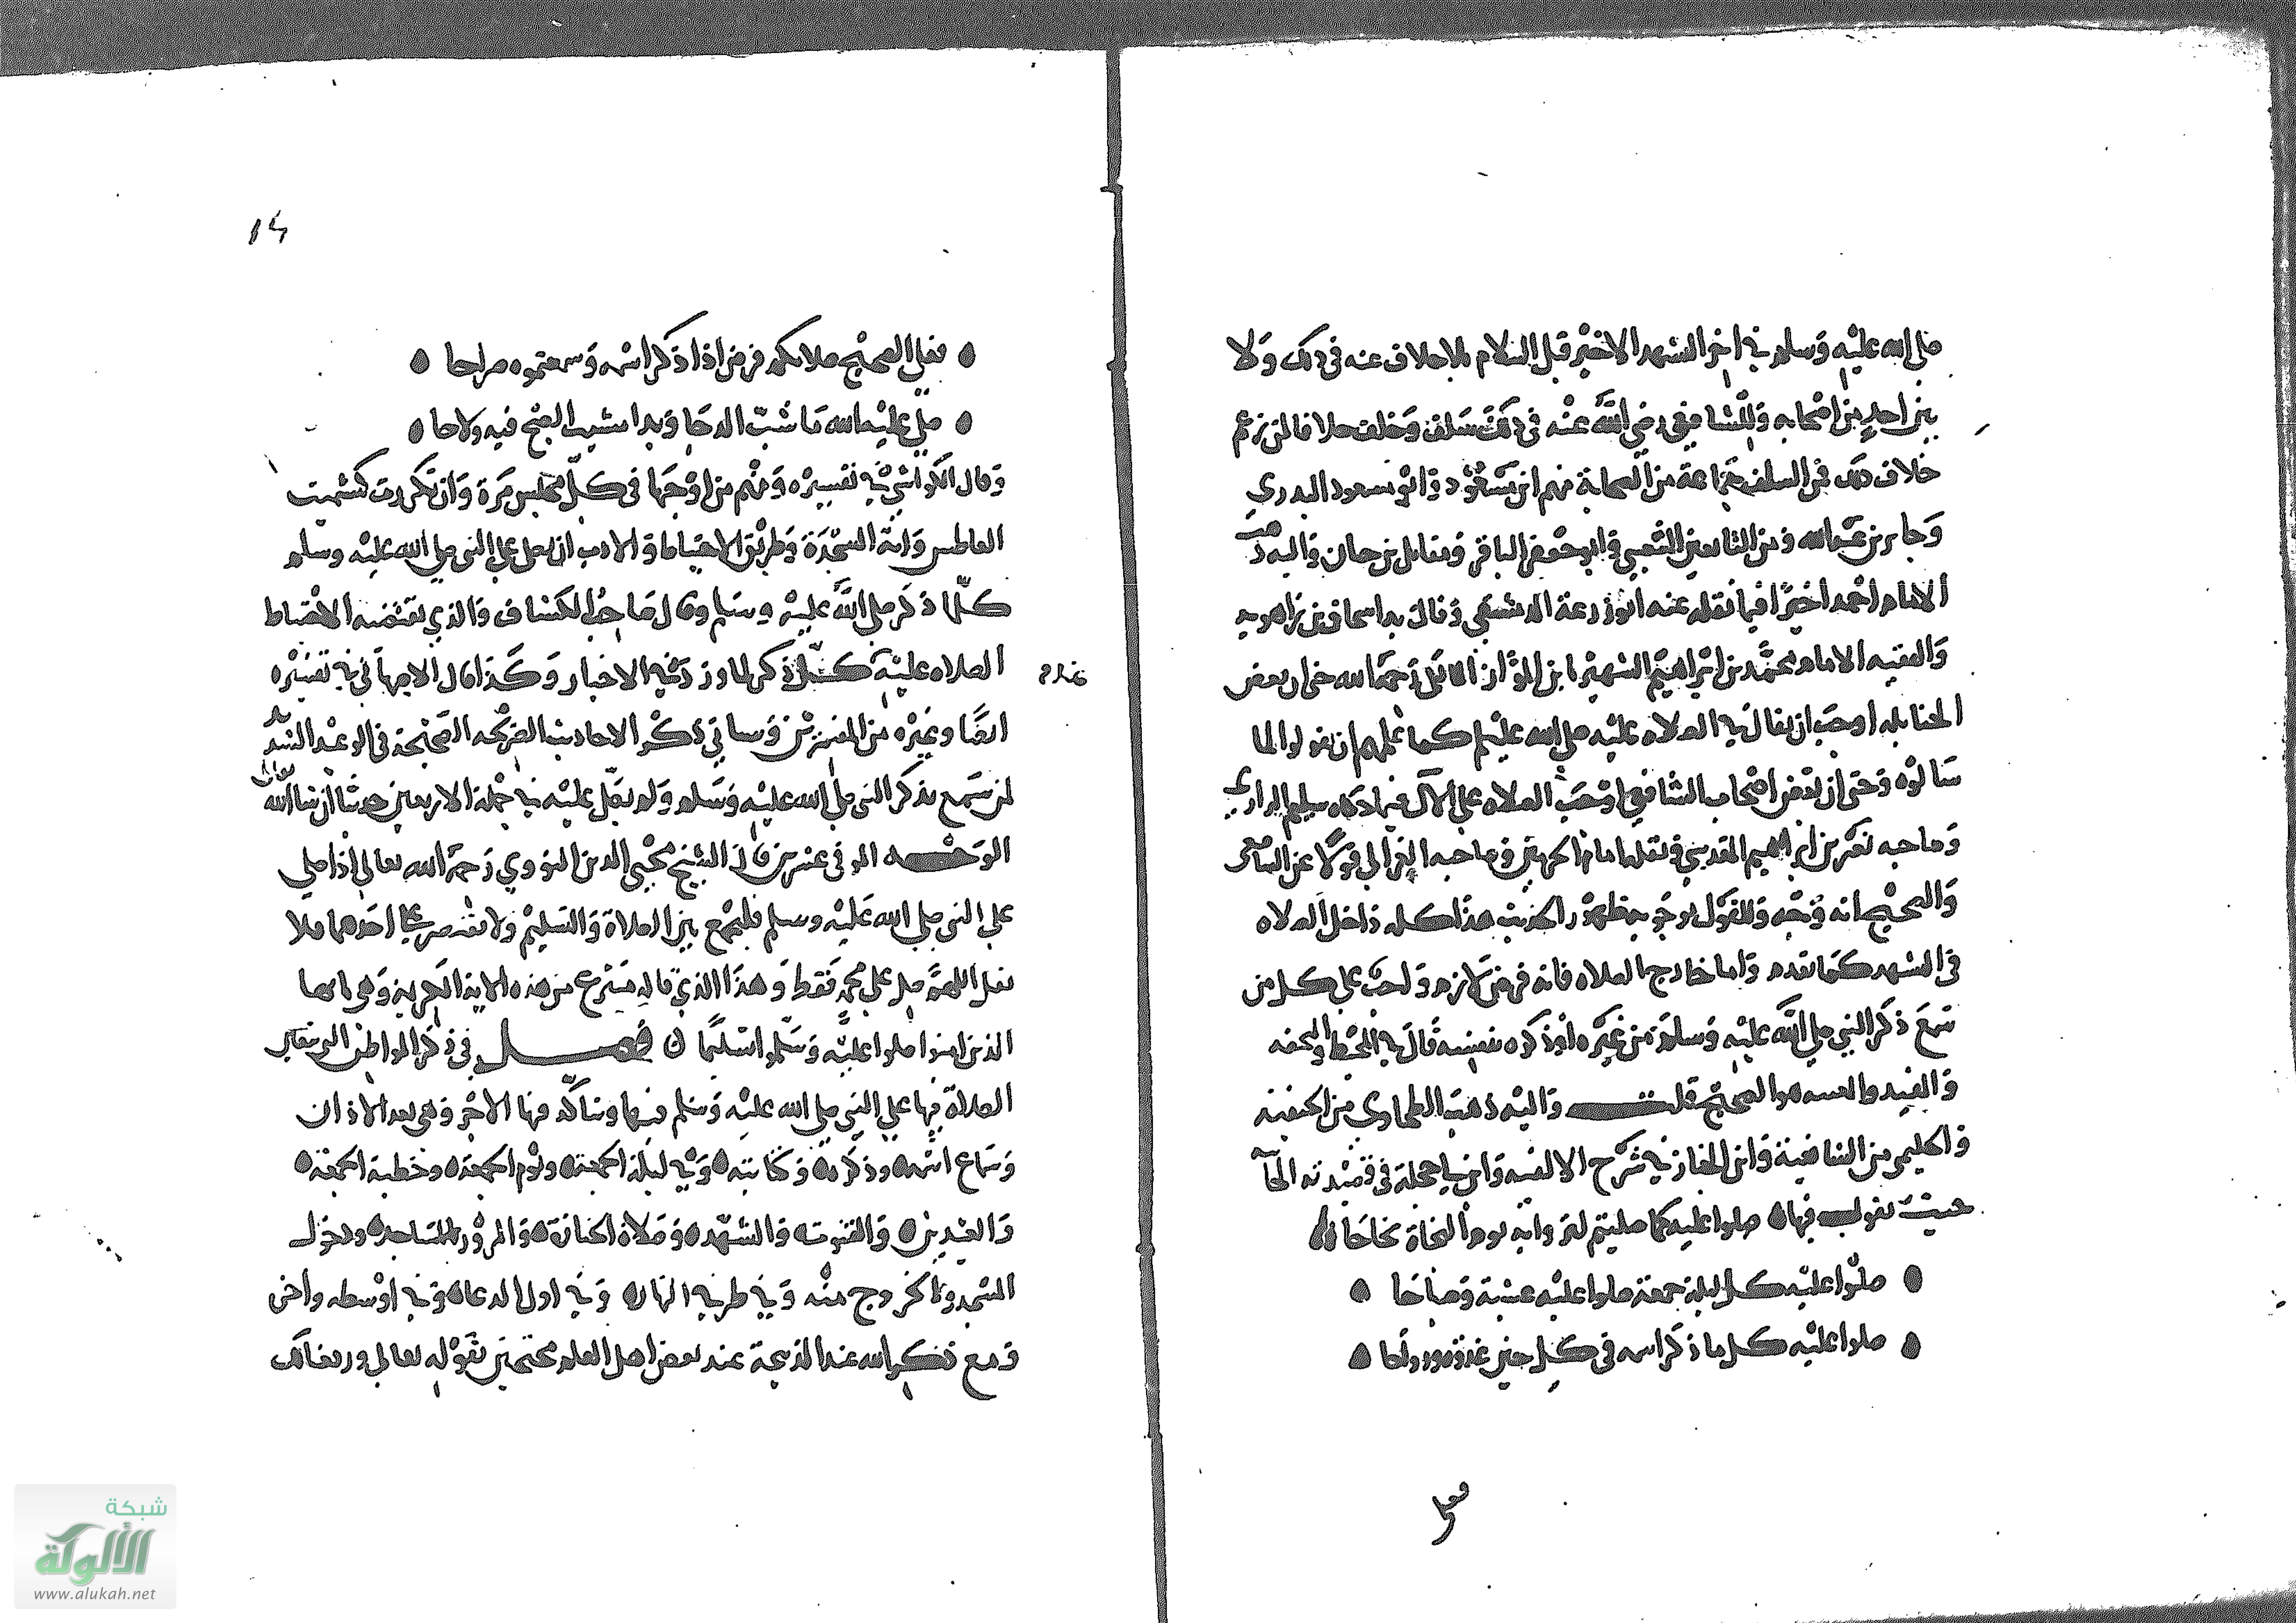 صلى الله عليه وسلم في اخر التشهد الاخير قبل السلام بلا خلاف عنه في ذلك ولا
بين احد من اصحابه وللشافعي رضي الله عنه في ذلك سلف وخلف خلافا لمن زعم
خلاف ذلك فمن السلف جماعة من الصحابة منهم ابن مسعود وابو مسعود البدري
وجابر بن عبد الله ومن التابعين الشعبي وابو جعفر الباقر ومقاتل بن حيان واليه ذهب
الامام احمد اخيرا فيما نقله عنه ابو زرعة الدمشقي وقال به اسحاق بن راهويه
والفقيه الامام محمد بن ابراهيم الشهير بابن المواز المالكي رحمه الله حتى ان بعض
الحنابله اوجب ان يقال في الصلاه عليه صلى الله عليه وسلم كما علمهم ان يقولوا لما
سالوه وحتى ان بعض اصحاب الشافعي اوجب الصلاه على الآل سليم الرازي
وصاحبه نصر بن ابراهيم المقدسي ونقله امام الحرمين وصاحبه الغزالي قولا عن الشافعي
والصحيح انه وجه وللقول بوجوبه هذا كله داخل الصلاه
في التشهد كما تقدم واما خارج الصلاه فانه فرض لازم على كل من
سمع ذكر النبي صلى الله عليه وسلم من غيره او ذكره بنفسه قال في المحيط والتحفه
والمفيد والغنيه هو الصحيح قلت واليه ذهب الطحاوي من الحنفيه
والحليمي من الشافعية وابن الخباز في شرح الالفيه وابن ابي حجلة في قصيدته الحآ
حيث يقول فيها صلوا عليه كما صليتم لتروا به يوم النجاة نجاحا
صلوا عليه كل ليلة جمعة صلوا عليه عشية وصباحا
صلوا عليه كل ما ذكر اسمه في كل حين غدوة ورواحا
صح
14
فعلى الصحيح صلاتكم فرض اذا ذكر اسمه وسمعتموه صراحا
صلى عليه الله ما شب الدجا وبدا مشيب الصبح فيه ولاحا
وقال الكواشي في تفسيره ومنهم من اوجبها في كل مجلس مرة وان تكررت كتشميت
العاطس واية السجدة وطريق الاحتياط والادب ان يصلى على النبي صلى الله عليه وسلم
كلما ذكر صلى الله عليه وسلم وقال صاحب الكشاف والذي يقتضيه الاحتياط
الصلاه عليه عند كل ذكر لما ورد في الاخبار وكذا قال الاصبهاني في تفسيره
ايضا وغيره من المفسرين وسياتي ذكر الاحاديث الصريحه الصحيحة في الوعيد الشديد
لمن سمع بذكر النبي صلى الله عليه وسلم ولم يصل عليه في جملة الاربعين حديثا ان شا الله تعالى
الوجه الموفي عشرين قال الشيخ محيي الدين النووي رحمه الله تعالى اذا صلي
على النبي صلى الله عليه وسلم فليجمع بين الصلاة والتسليم ولا يقتصر على احدهما فلا
يقل اللهم صل على محمد فقط وهذا الذي قاله منتزع من هذه الاية الكريمة وهي يا ايها
الذين امنوا صلوا عليه وسلموا تسليما فصل في ذكر المواطن التي تتعين
الصلاة فيها على النبي صلى الله عليه وسلم فيها ويتاكد فيها الاجر وهي بعد الاذان
وسماع اسمه وذكره وكتابته وفي ليلة الجمعة ويوم الجمعة وخطبة الجمعة
والعيدين والقنوت والتشهد وصلاة الجنازة والمرور بالمساجد ودخول
المسجد والخروج منه وفي طرفي النهار وفي اول الدعاء وفي اوسطه واخره
ومع ذكر الله عند الذبيحة عند بعض اهل العلم محتجين بقوله تعالى ورفعنا لك
شبكة
الألوكة
www.alukah.net